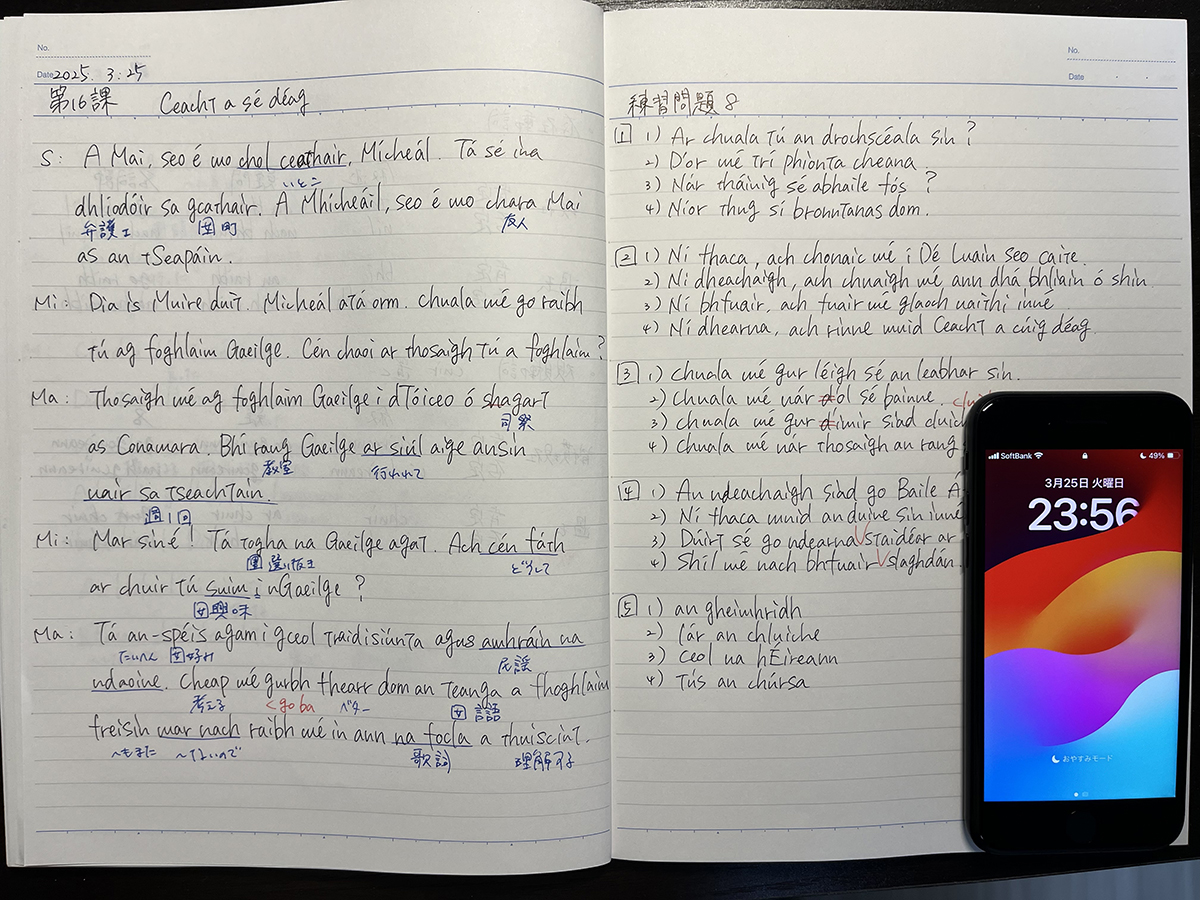 No.
Date 2025. 3. 25
第16課 Ceacht a sé déag
S: A Mai, seo é mo chol ceathair, Mícheál. Tá sé ina
いとこ
dhlíodóir sa gcathair. A Mhícheáil, seo é mo chara Mai
弁護士 町 友人
as an tSeapáin.
Mi: Dia is Muire duit. Mícheál atá orm. Chuala mé go raibh
tú ag foghlaim Gaeilge. Cén chaoi ar thosaigh tú a foghlaim?
Ma: Thosaigh mé ag foghlaim Gaeilge i dTóiceo ó shagart
司祭
as Conamara. Bhí rang Gaeilge ar siúl aige ansin
教室 行われて
uair sa tseachtain.
週1回
Mi: Mar siné! Tá togha na Gaeilge agat. Ach cén fáth
どうして
ar chuir tú suim i nGaeilge?
女 興味
Ma: Tá an-spéis agam i gceol traidisiúnta agus amhráin na
たいへん 女 好み 民謡
ndaoine. Cheap mé gurbh fhearr dom an teanga a fhoghlaim
考える < go ba ベター 女 言語
freisin mar nach raibh mé in ann na focla a thuiscint.
〜もまた 〜ないので 歌詞 理解する
No.
Date
練習問題 8
1 1) Ar chuala tú an drochscéala sin?
2) D'ór mé trí phionta cheana.
3) Nár tháinig sé abhaile fós?
4) Níor thug sí bronntanas dom.
2 1) Ní thaca, ach chonaic mé í Dé Luain seo caite.
2) Ní dheachaigh, ach chuaigh mé ann dhá bhliain ó shin.
3) Ní bhfuair, ach fuair mé glaoch uaithi inné
4) Ní dhearna, ach rinne muid Ceacht a cúig déag.
3 1) Chuala mé gur léigh sé an leabhar sin.
2) Chuala mé nár ól sé bainne.
3) Chuala mé gur imir siad
4) Chuala mé nár thosaigh an rang
4 1) An ndeachaigh siad go Baile Á
2) Ní thaca muid an duine sin inné
3) Dúirt sé go ndearna staidéar ar
4) Shíl mé nach bhfuair slaghdán.
5 1) an gheimhridh
2) lár an chluiche
3) Ceol na hÉireann
4) tús an chúrsa
SoftBank 49%
3月25日 火曜日
23:56
おやすみモード